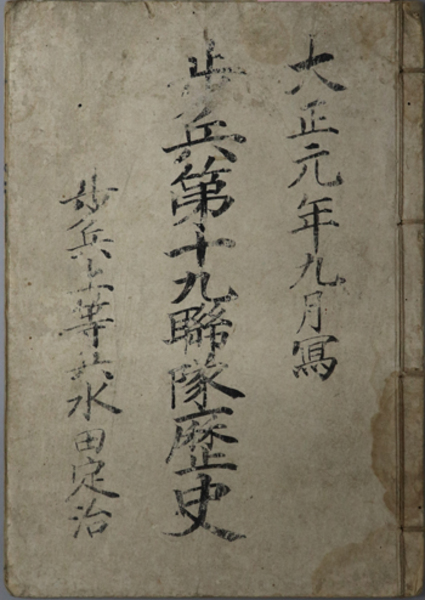 大正元年九月寫
歩兵第十九聯隊歴史
歩兵上等兵水田定治